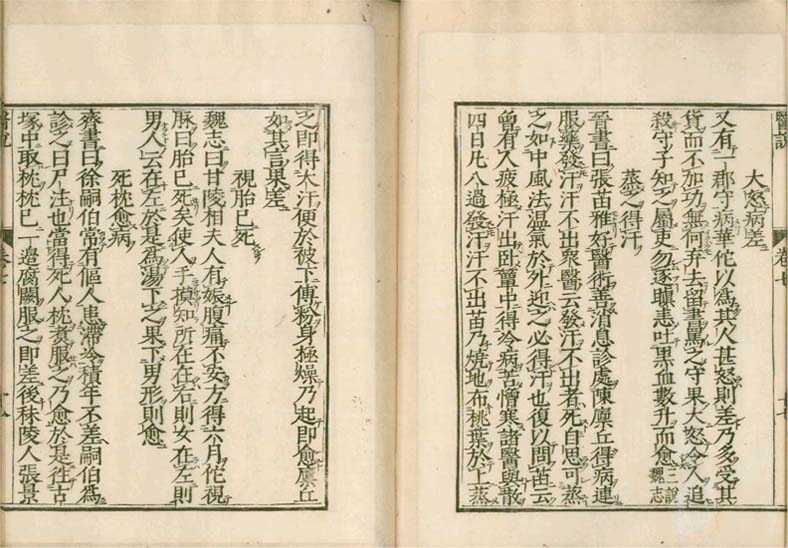 醫説
卷七
大怒病差
又有一郡守病華佗以爲其人甚怒則差乃多受其
貨而不加功無何弃去留書罵之守果大怒令人追
殺守子知之屬吏勿逐瞋恚吐黒血數升而愈三說魏志
蒸之得汗
晉書曰張苗雅好醫術善消息診處陳廩丘得病連
服藥發汗汗不出衆醫云發汗不出者死自思可蒸
之如中風法温氣於外迎之必得汗也復以問苗云
曾有人疲極汗出卧簟中得冷病苦憎寒諸醫與散
四日凡八過發汗汗不出苗乃燒地布桃葉於上蒸
之即得大汗便於被下傅粉身極燥乃起即愈廩丘
如其言果差
視胎已死
魏志曰甘陵相夫人有娠腹痛不安方得六月佗視
脉曰胎已死矣使人手摸知所在在右則女在左則
男人云在左於是爲湯下之果下男形則愈
死枕愈病
齊書曰徐嗣伯常有傴人患滯冷積年不差嗣伯爲
診之曰尸注也當得死人枕煑服之乃愈於是徃古
塚中取枕枕已一邉腐闕服之即差後秣陵人張景